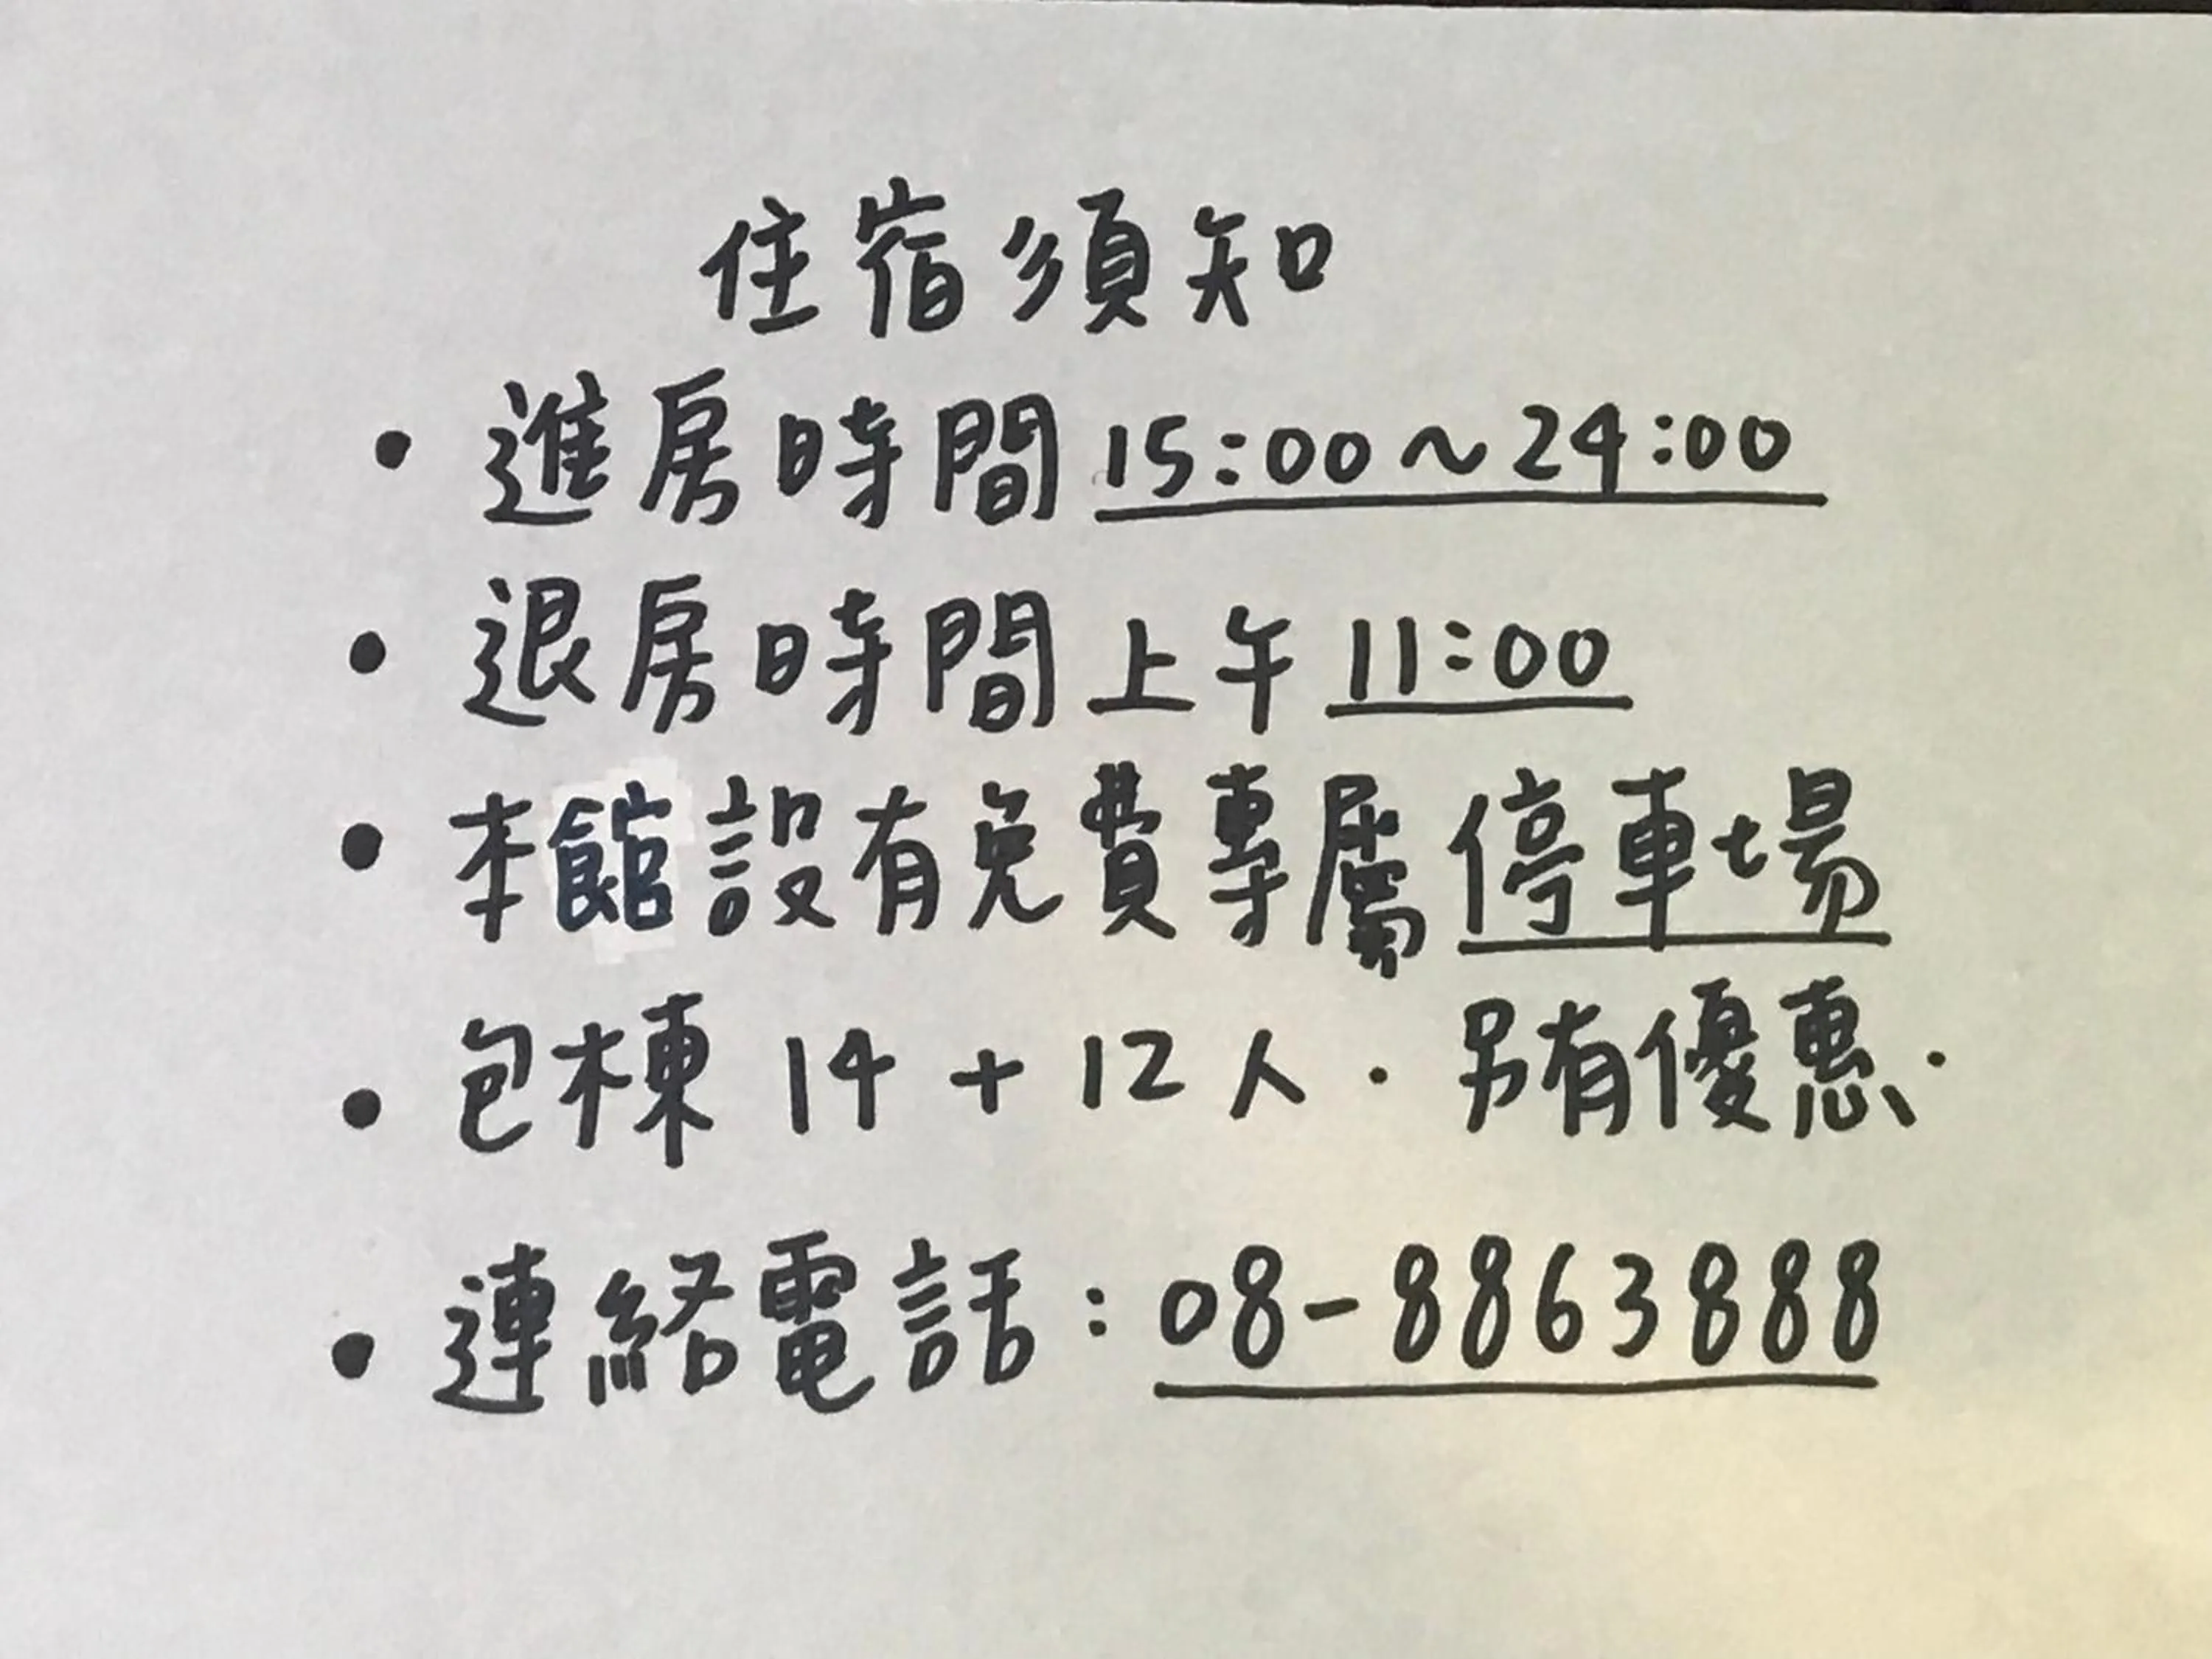 住宿須知
• 進房時間 15:00~24:00
• 退房時間上午 11:00
• 本館設有免費專屬停車場
• 包棟 14 + 12 人．另有優惠．
• 連絡電話：08-8863888